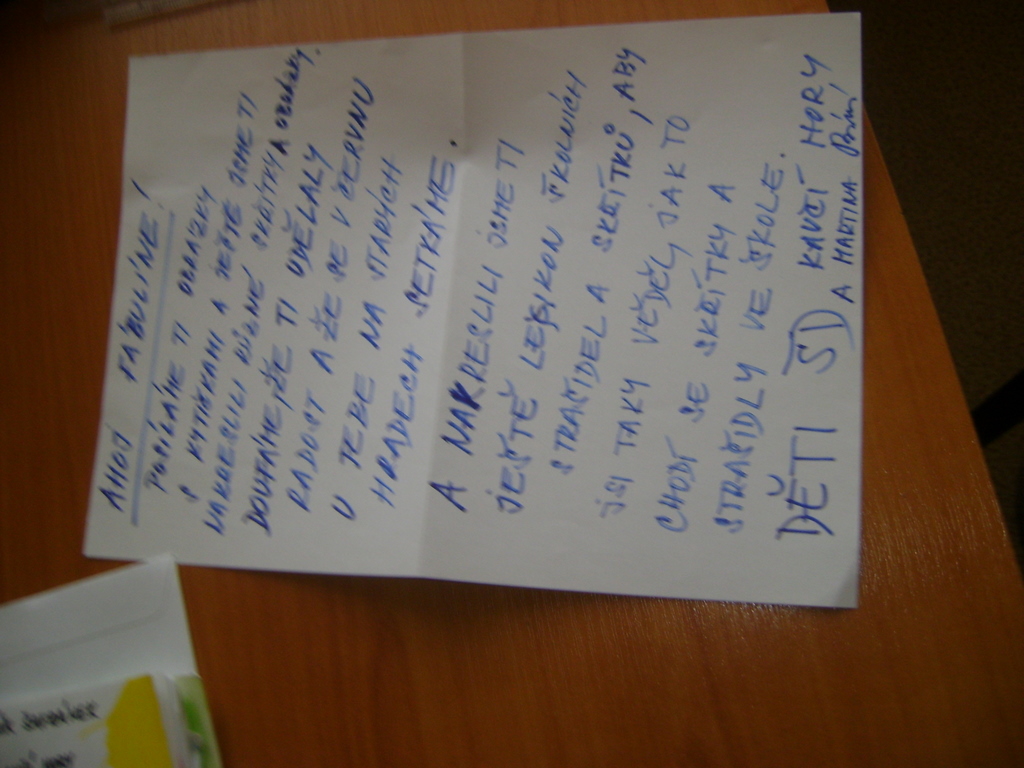 AHOJ FÁBULÍNE!
POSÍLÁME TI OBRÁZKY
S KYTIČKAMI A JEŠTĚ JSME TI
NAKRESLILI RŮZNÉ SKŘÍTKY A OBRÁZKY.
DOUFÁME, ŽE TI UDĚLALY
RADOST A ŽE SE V ČERVNU
U TEBE NA STARÝCH
HRADECH SETKÁME.
A NAKRESLILI JSME TI
JEŠTĚ LEXIKON ŠKOLNÍCH
STRAŠIDEL A SKŘÍTKŮ, ABY
JSI TAKY VĚDĚL, JAK TO
CHODÍ SE SKŘÍTKY A
STRAŠIDLY VE ŠKOLE.
DĚTI ŠD KAVČÍ HORY
A MARTINA